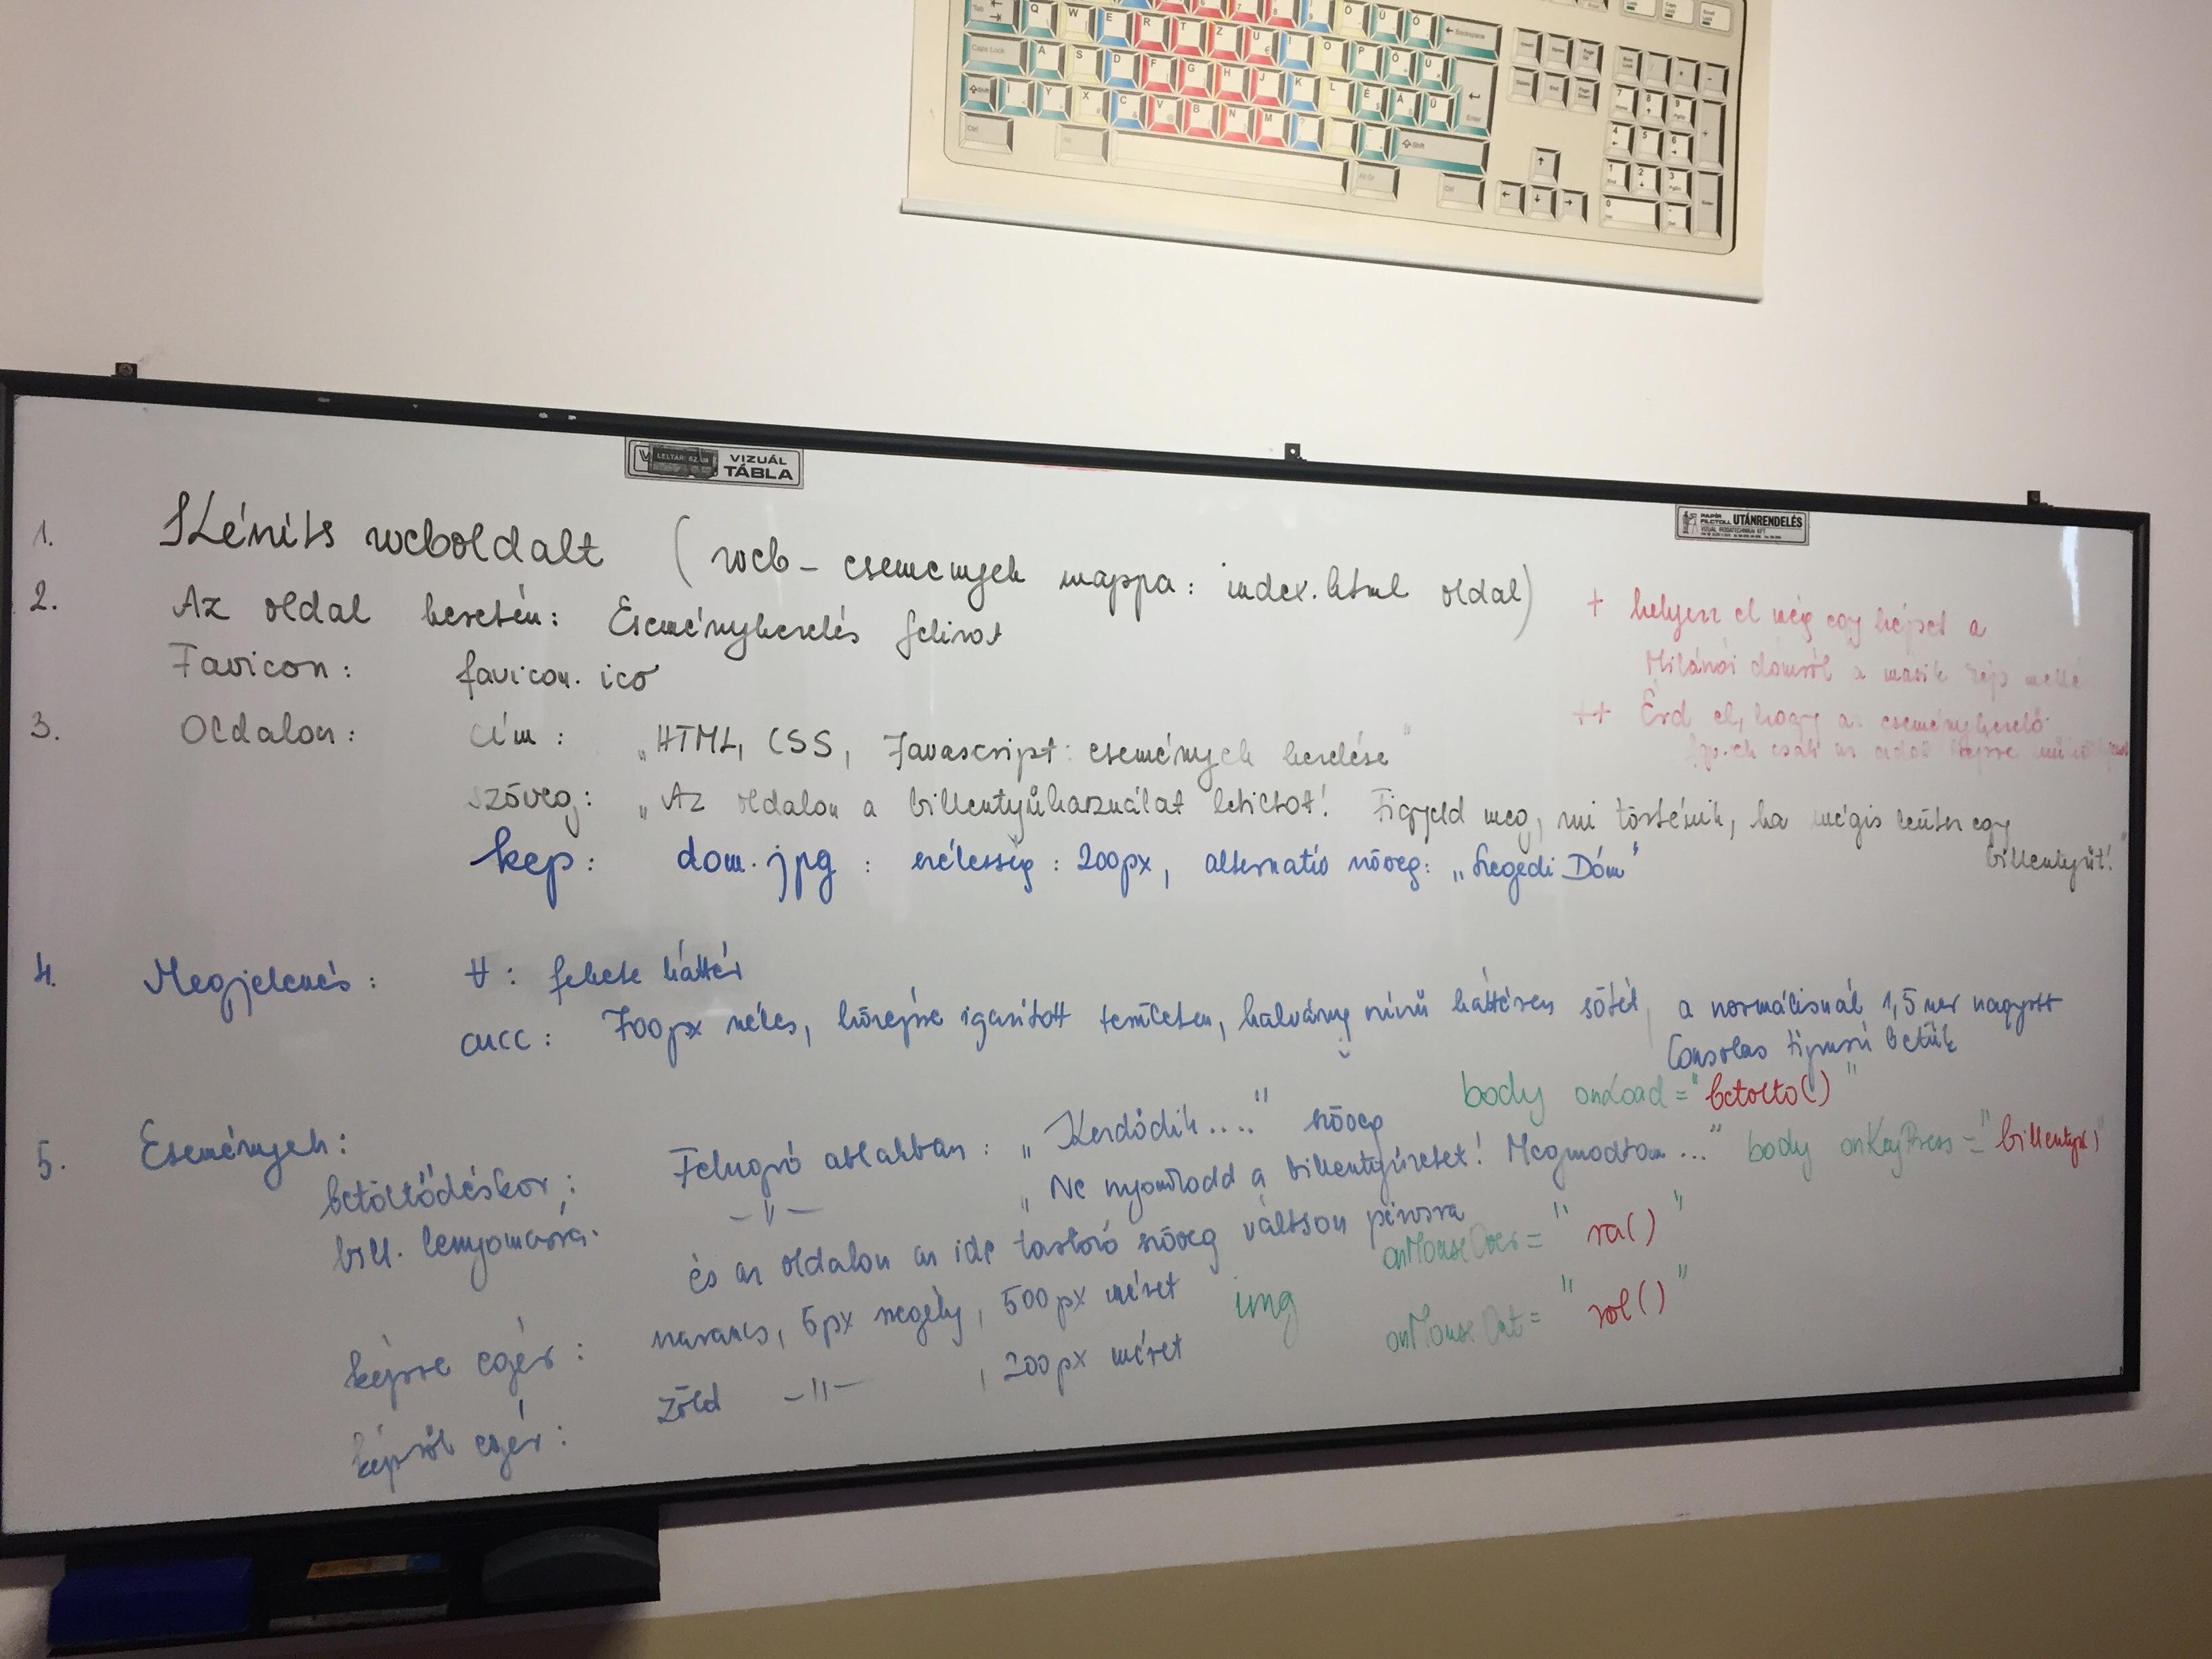 VIZUÁL
TÁBLA
UTÁNRENDELÉS
1. Készíts weboldalt (web-esemenyek mappa: index.html oldal)
2. Az oldal keretén: Eseménykezelés felirat
Favicon: favicon.ico
3. Oldalon: cím: „HTML, CSS, Javascript: események kezelése"
szöveg: „Az oldalon a billentyűhasználat letiltot! Figyeld meg, mi történik, ha mégis leütsz egy
billentyűt!"
kép: dom.jpg: szélesség: 200px, alternatív szöveg: „Szegedi Dóm"
+ helyezz el még egy képet a
Milánói dómról a másik kép mellé
++ Érd el, hogy az eseménykezelő
4. Megjelenés: ∀: fekete háttér
cucc: 700px széles, középre igazított területen, halvány színű háttéren sötét, a normálisnál 1,5 szer nagyobb
Consolas típusú betűk
5. Események:
betöltődéskor: Felugró ablakban: „Kezdődik...." szöveg body onLoad="betolto()"
bill. lenyomására: —"— „Ne nyomkodd a billentyűzetet! Megmodtam..." body onKeyPress="billentyu()"
és az oldalon az ide tartozó szöveg váltson pirosra
képre egér: narancs, 5px szegély, 500px méret img onMouseOver="ra()"
képről egér: zöld —"—, 200px méret onMouseOut="rol()"